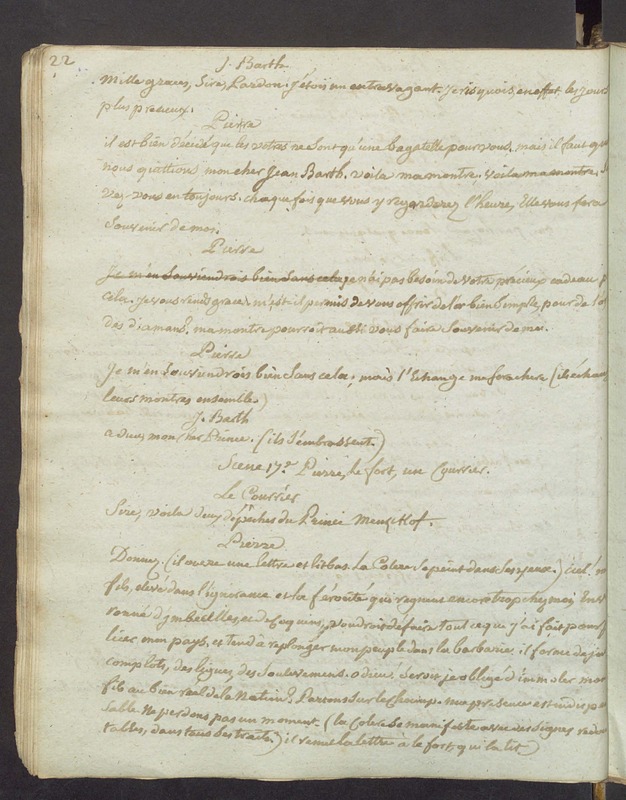 22
J. Barth
Mille graces, Sire, Pardon. j'étois un extravagant. je risquois en effet les jours
plus precieux.
Pierre
il est bien décidé que les votres ne sont qu'une bagatelle pour vous. mais il faut que
nous quittions mon cher Jean Barth. voila ma montre, voila ma montre. S
vez-vous en toujours. chaque fois que vous y regarderez l'heure, Elle vous fera
souvenir de moi.
Pierre
Je m'en souviendrois bien sans cela je n'ai pas besoin de votre précieux cadeau p
cela. je vous rends grace. m'est-il permis de vous offrir de l'or bien simple, pour de l'or
des diamans? ma montre pourroit aussi vous faire souvenir de moi.
Pierre
Je m'en souviendrois bien sans cela, mais l'Echange me sera chere (ils échan
leurs montres ensemble)
J. Barth
adieu, mon cher Prince. (ils s'embrassent.)
Scene 17e. Pierre, le fort, un Courrier.
Le Courrier
Sire, voila deux dépêches du Prince Menzikof.
Pierre
Donnez, (il ouvre une lettre et lit bas. la Colere se peint dans ses yeux.) ciel! m
fils, elevé dans l'ignorance et la férocité qui regnent encore trop chez moi Envi
ronné d'imbecilles, et de coquins, voudroit defaire tout ce que j'ai fait pour p
licer mon pays, et tend à replonger mon peuple dans la barbarie. il forme déja
complots, des ligues, des soulevemens. o dieu! serois-je obligé d'immoler mon
fils au bien réel de la Nation? Partons sur le champ. ma presence est indispen
sable. Ne perdons pas un moment. (la Colere se manifeste avec des signes redou
tables, dans tous ses traits.) il remet la lettre à le fort, qui la lit)